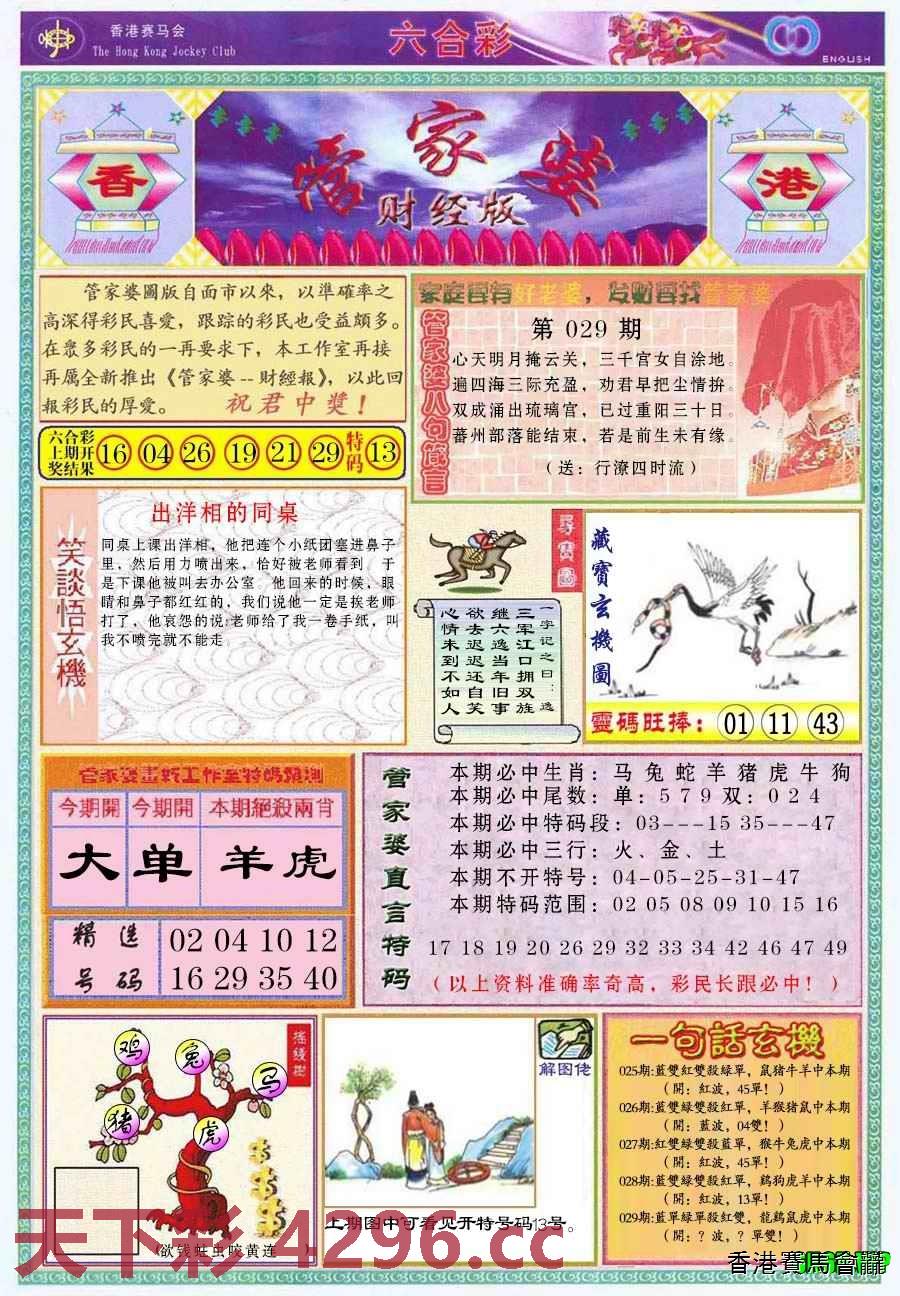 香港赛马会
The Hong Kong Jockey Club
六合彩
ENGLISH
香
管家婆
财经版
港
管家婆圖版自面市以來，以準確率之
高深得彩民喜愛，跟踪的彩民也受益頗多。
在衆多彩民的一再要求下，本工作室再接
再厲全新推出《管家婆--財經報》，以此回
報彩民的厚愛。
祝君中獎！
六合彩
上期开
奖结果
16 04 26 19 21 29
特码
13
家庭要有好老婆，发财要找管家婆
管家婆八句箴言
第 029 期
心天明月掩云关，三千官女自涂地。
遍四海三际充盈，劝君早把尘情拚。
双成涌出琉璃宫，已过重阳三十日。
蕃州部落能结束，若是前生未有缘。
（送：行潦四时流）
笑談悟玄機
出洋相的同桌
同桌上课出洋相，他把连个小纸团塞进鼻子
里，然后用力喷出来，恰好被老师看到，于
是下课他被叫去办公室，他回来的时候，眼
睛和鼻子都红红的，我们说他一定是挨老师
打了，他哀怨的说:老师给了我一卷手纸，叫
我不喷完就不能走
尋寶圖
一字记之曰：选
三军江口拥双旌
继六逸当年旧事
欲去迟迟还自笑
心情未到不如人
藏寶玄機圖
靈碼旺捧：01 11 43
今期開
今期開
本期絕殺兩肖
大
单
羊 虎
精 选
号 码
02 04 10 12
16 29 35 40
管家婆直言特码
本期必中生肖：马 兔 蛇 羊 猪 虎 牛 狗
本期必中尾数：单：5 7 9 双：0 2 4
本期必中特码段：03---15 35---47
本期必中三行：火、金、土
本期不开特号：04-05-25-31-47
本期特码范围：02 05 08 09 10 15 16
17 18 19 20 26 29 32 33 34 42 46 47 49
（以上资料准确率奇高，彩民长跟必中！）
摇錢樹
鸡
兔
马
猪
虎
(欲钱蛀虫咬黄连
解图佬
上期图中可看见开特号码13号。
一句話玄機
025期:藍雙紅雙殺綠單，鼠猪牛羊中本期
（開：紅波，45單！）
026期:藍雙綠雙殺紅單，羊猴猪鼠中本期
（開：藍波，04雙！）
027期:紅雙綠雙殺藍單，猴牛兔虎中本期
（開：紅波，45單！）
028期:藍雙綠雙殺紅單，鷄狗虎羊中本期
（開：紅波，13單！）
029期:藍單綠單殺紅雙，龍鷄鼠虎中本期
（開：？波，？單雙！）
天下彩 4296.cc
香港賽馬會